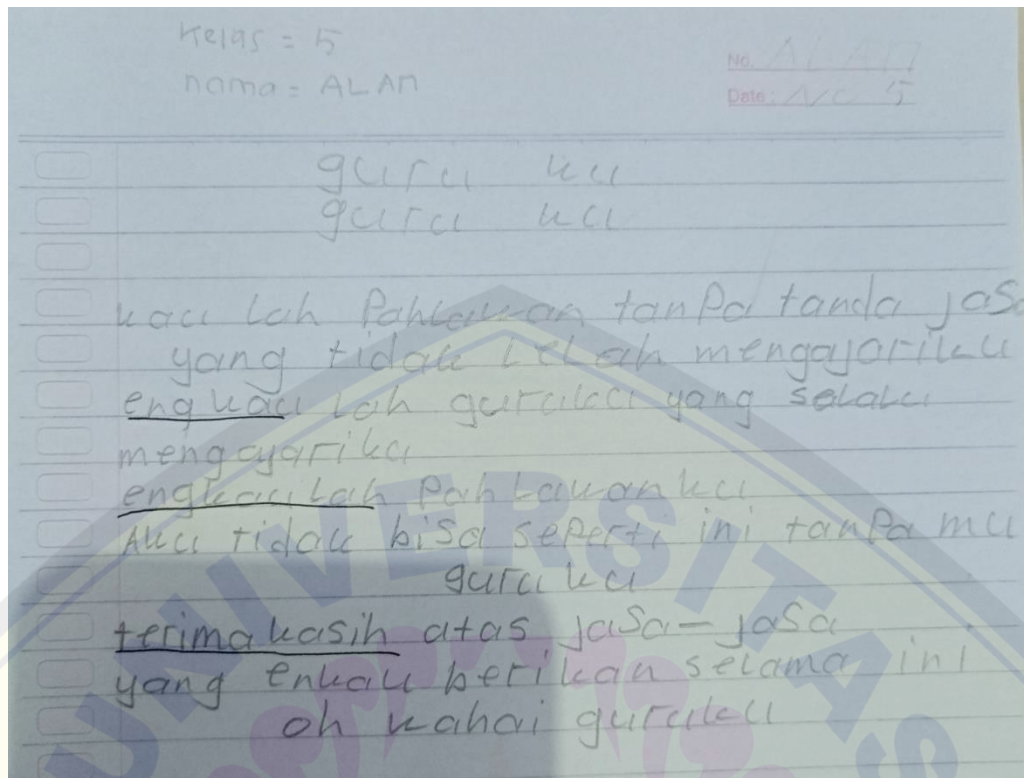 Kelas = 5
nama = ALAN
No. ALAN
Date: NO 5
guru ku
guru ku
kau lah Pahlawan tanPa tanda jasa
yang tidak lelah mengajariku
engkau lah guruku yang selalu
mengayariku
engkau lah Pahlawanku
Aku tidak bisa seperti ini tanPa mu
guru ku
terima kasih atas jaSa - jaSa
yang enkau berikan selama ini
oh wahai guruku
UNIVERSITAS